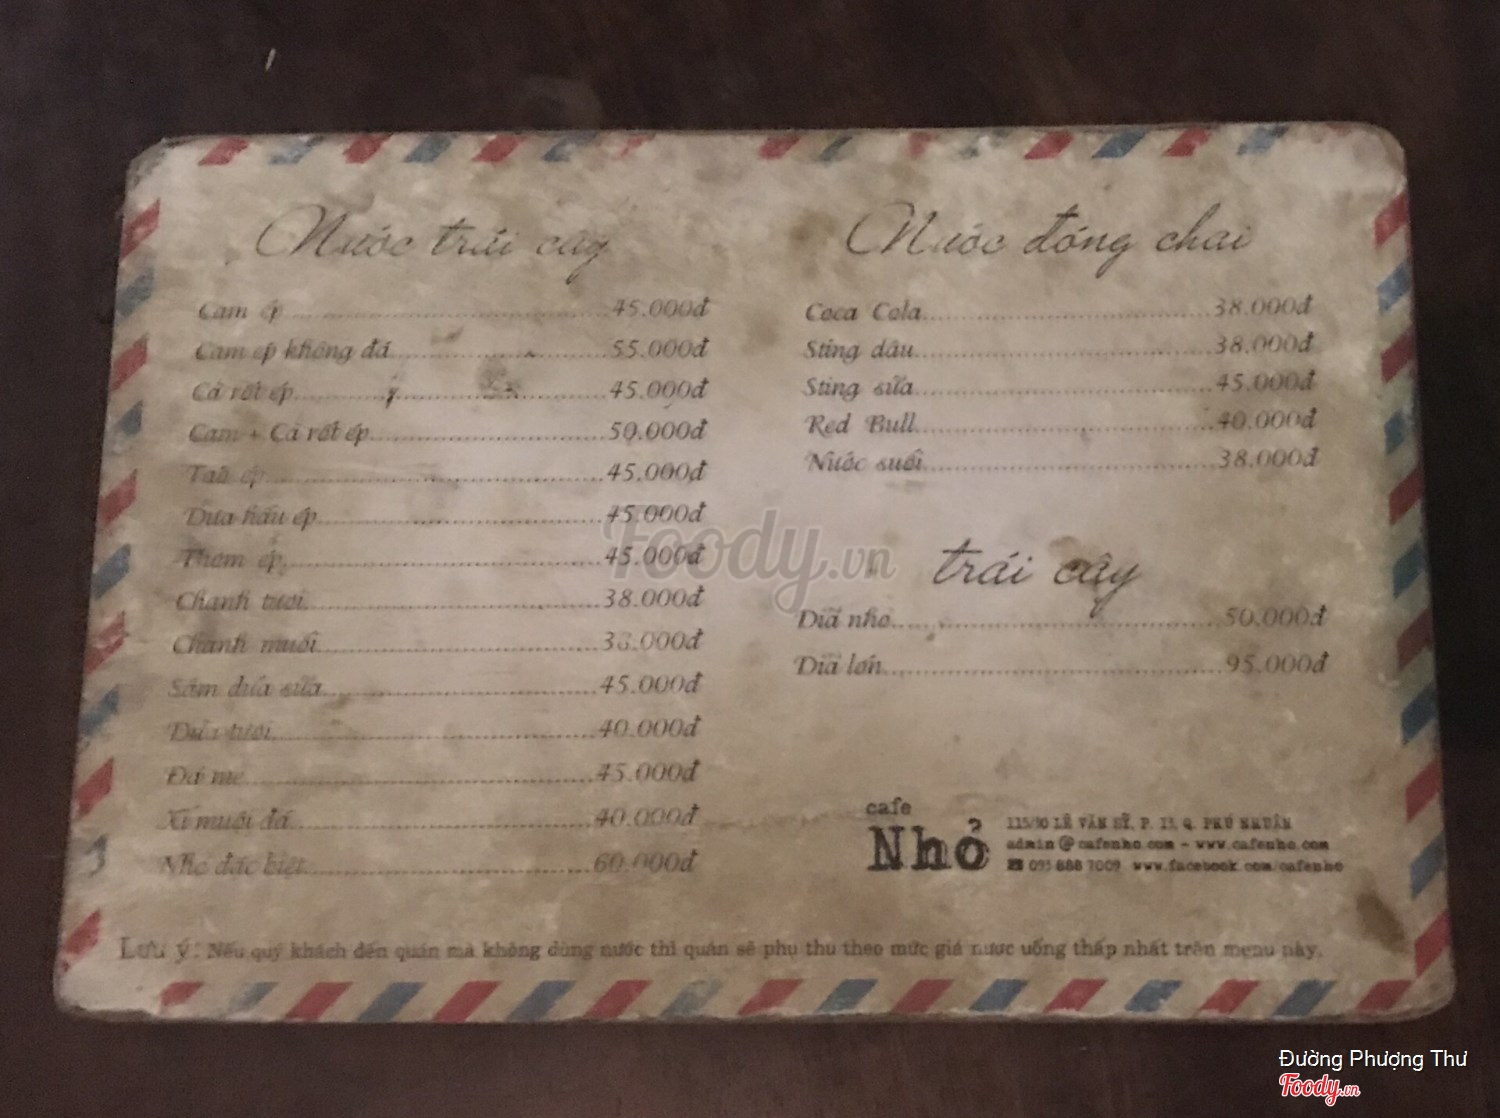 Nước trái cây
Cam ép 45.000đ
Cam ép không đá 55.000đ
Cà rốt ép 45.000đ
Cam + Cà rốt ép 50.000đ
Táo ép 45.000đ
Dưa hấu ép 45.000đ
Thơm ép 45.000đ
Chanh tươi 38.000đ
Chanh muối 38.000đ
Sâm dứa sữa 45.000đ
Dừa tươi 40.000đ
Đá me 45.000đ
Xí muội đá 40.000đ
Nho đặc biệt 60.000đ
Nước đóng chai
Coca Cola 38.000đ
Sting dâu 38.000đ
Sting sữa 45.000đ
Red Bull 40.000đ
Nước suối 38.000đ
trái cây
Dĩa nhỏ 50.000đ
Dĩa lớn 95.000đ
cafe
Nhỏ
LÊ VĂN SỸ, P. 13, Q. PHÚ NHUẬN
admin@cafenho.com - www.cafenho.com
093 888 7009 www.facebook.com/cafenho
Lưu ý: Nếu quý khách đến quán mà không dùng nước thì quán sẽ phụ thu theo mức giá nước uống thấp nhất trên menu này.
Foody.vn
Đường Phượng Thư
Foody.vn